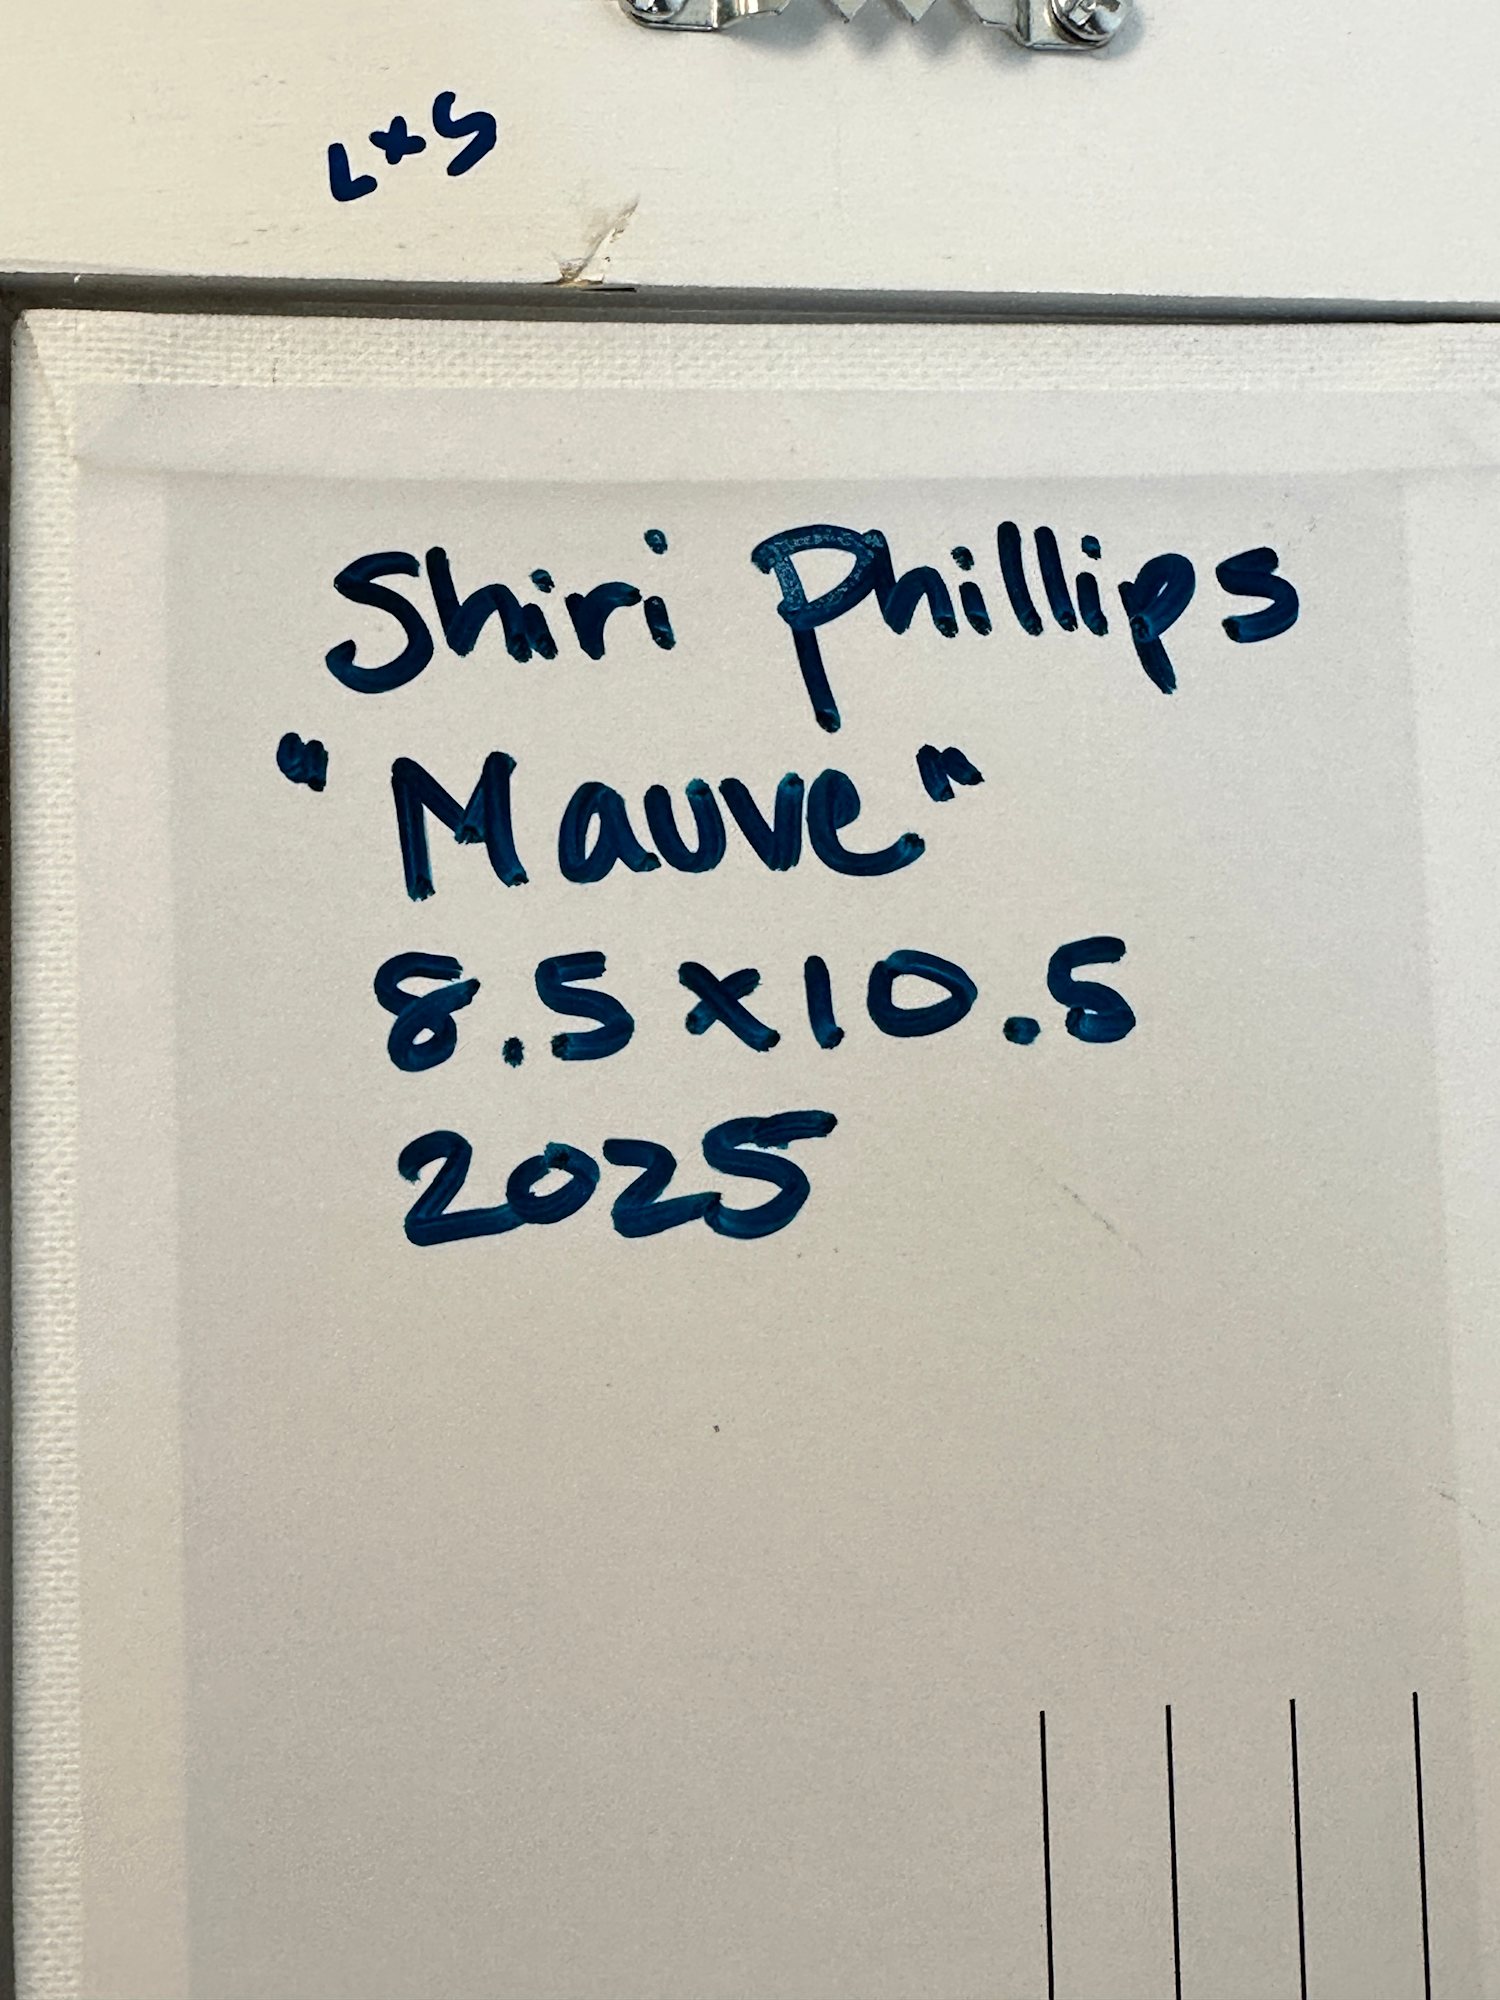 LxS
Shiri Phillips
"Mauve"
8.5x10.5
2025